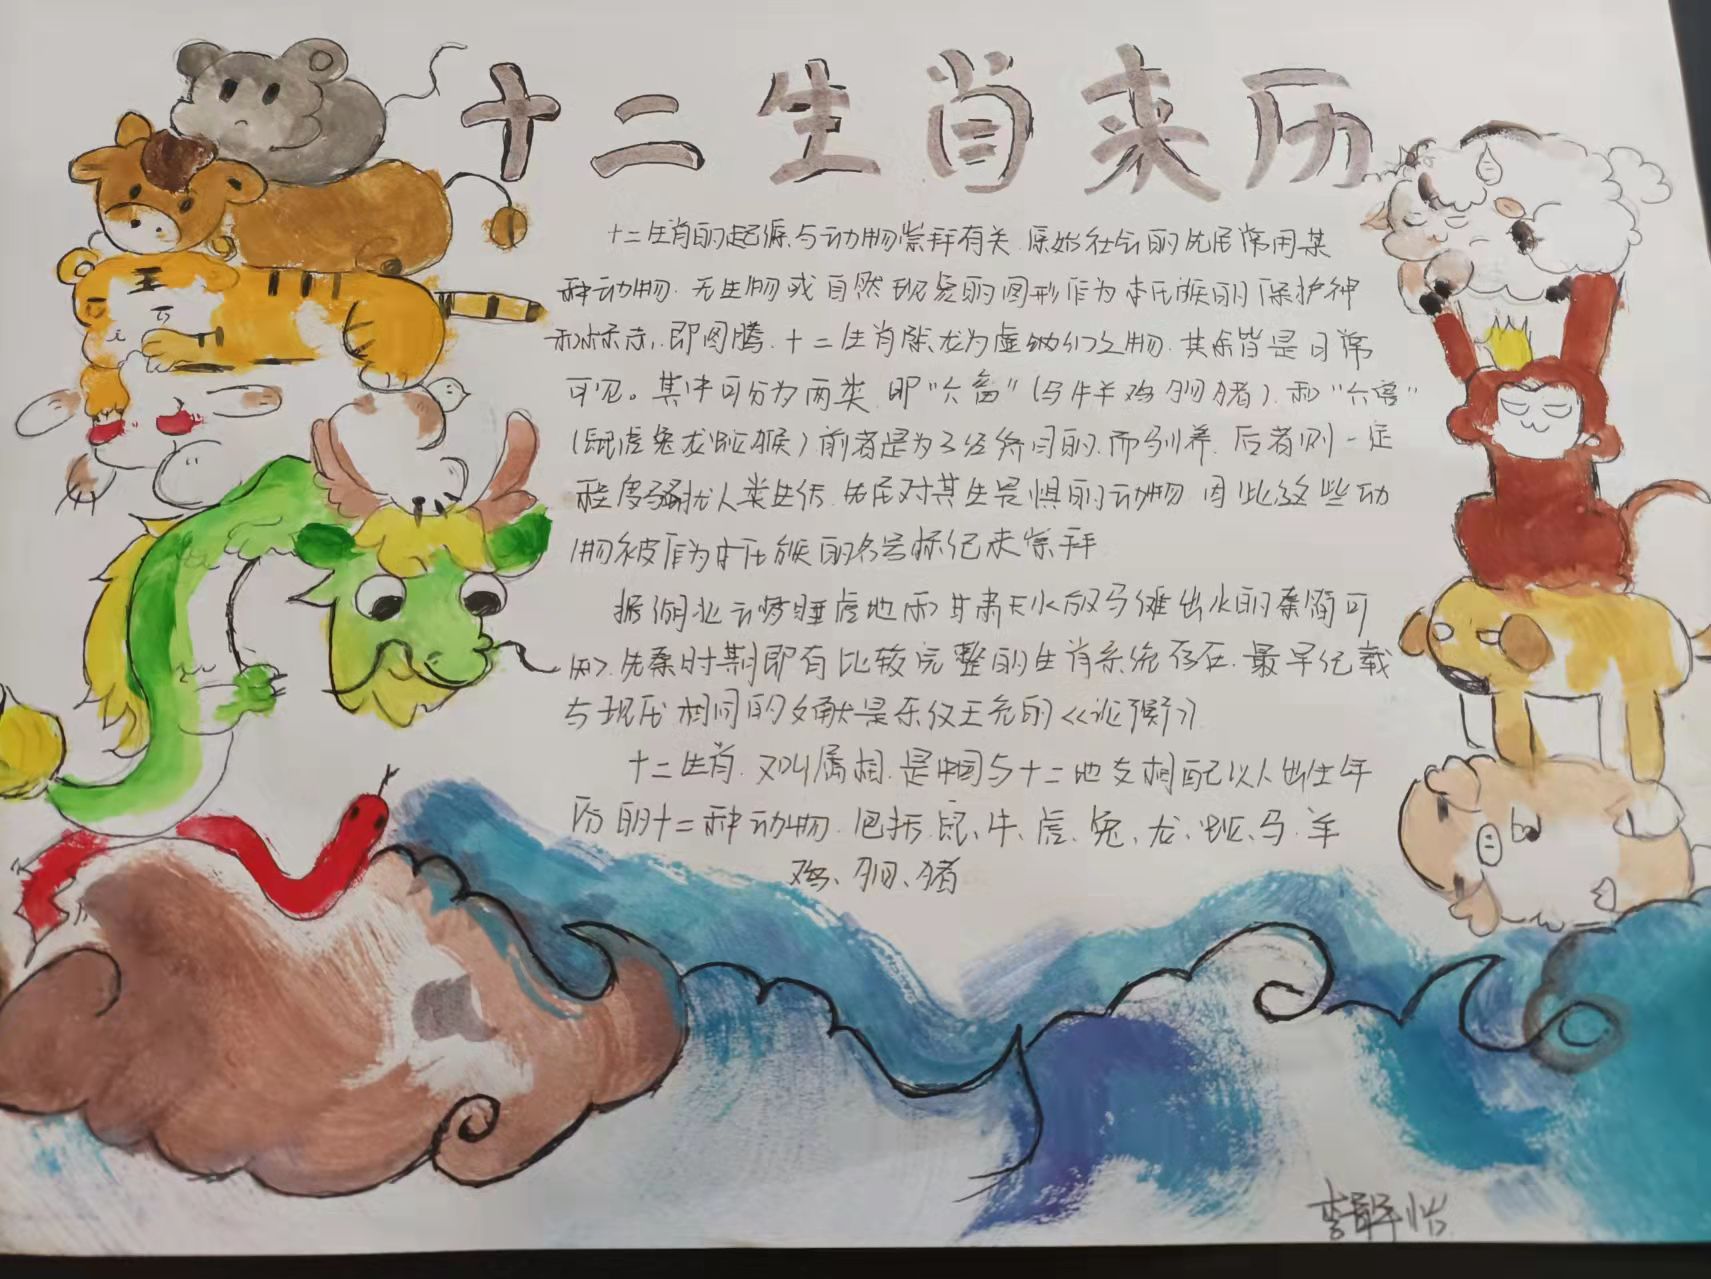 十二生肖来历
十二生肖的起源与动物崇拜有关.原始社会的先民常用某
种动物.无生物或自然现象的图形作为本氏族的保护神
和标志.即图腾.十二生肖除龙为虚幻之物.其余皆是日常
可见。其中可分为两类.即“六畜”(马牛羊鸡狗猪).和“六兽”
(鼠虎兔龙蛇猴)前者是为了经济目的.而驯养.后者则一定
程度骚扰人类生活.先民对其生是惧的动物.因此这些动
物被作为本氏族的名号标记来崇拜
据湖北云梦睡虎地和甘肃天水放马滩出水的秦简可
知.先秦时期即有比较完整的生肖系统存在.最早记载
与现代相同的文献是东汉王充的《论衡》
十二生肖.又叫属相.是中国与十二地支相配以人出生年
历的十二种动物.包括.鼠、牛、虎、兔、龙、蛇、马.羊
鸡、狗、猪